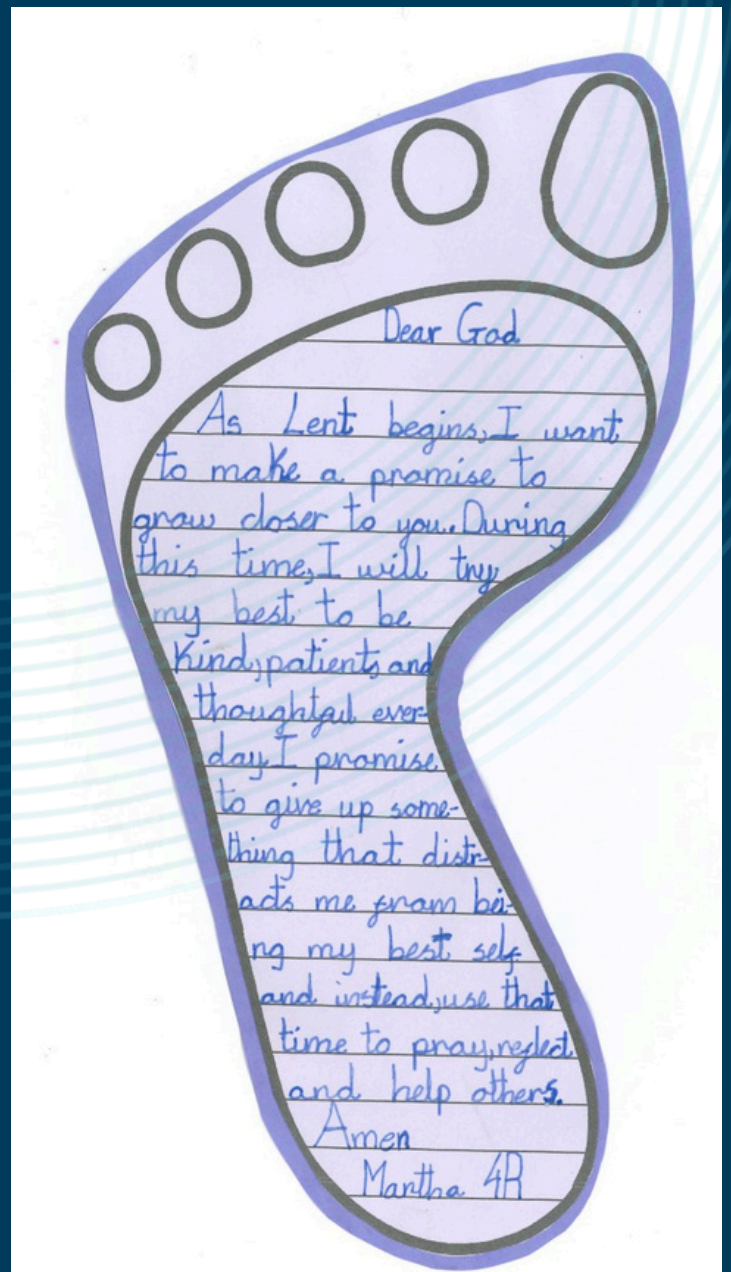 Dear God
As Lent begins, I want
to make a promise to
grow closer to you. During
this time, I will try
my best to be
kind, patient, and
thoughtful ever-
day. I promise
to give up some-
thing that distr-
acts me from bei-
ng my best self
and instead, use that
time to pray, reflect
and help others.
Amen
Martha 4R